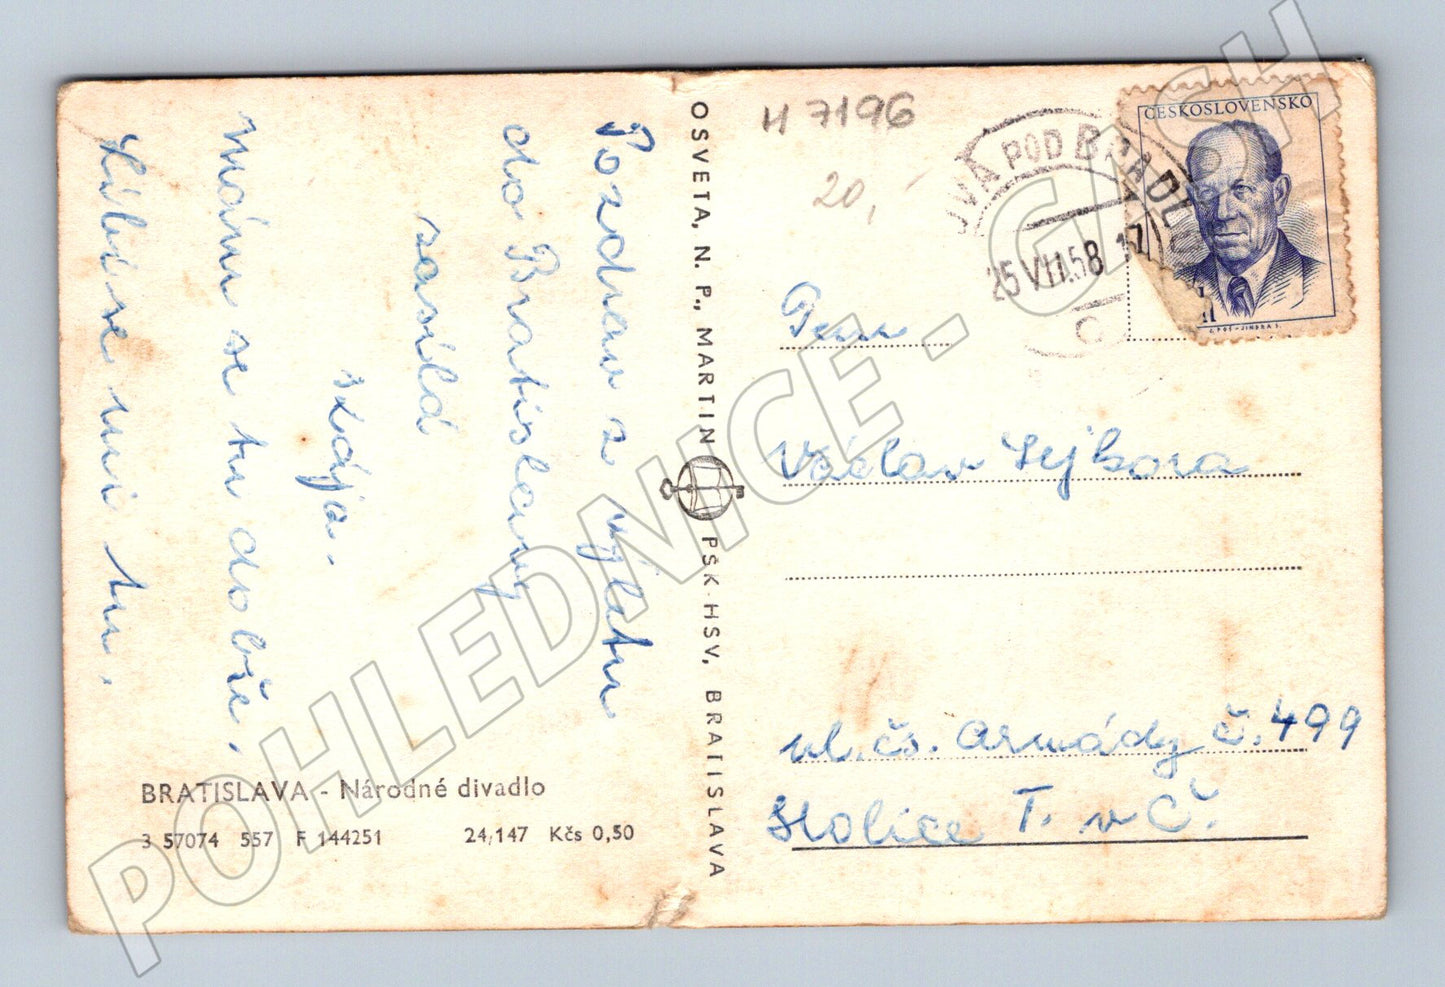 H 7196
20,-
Pozdrav z výletu
do Bratislavy
zasílá
Mám se tu dobře.
Líbí se mi tu.
BRATISLAVA - Národné divadlo
3 57074 557 F 144251 24,147 Kčs 0,50
OSVETA, N. P., MARTIN
PŠK-HSV, BRATISLAVA
OVÁ POD BRADL
25 VII.58 17
ČESKOSLOVENSKO
J. POŠ - JINDRA S.
Pan
Václav Sejkora
ul. čs. Armády č. 499
Holice T. v Č.
POHLEDNICE - GMCH